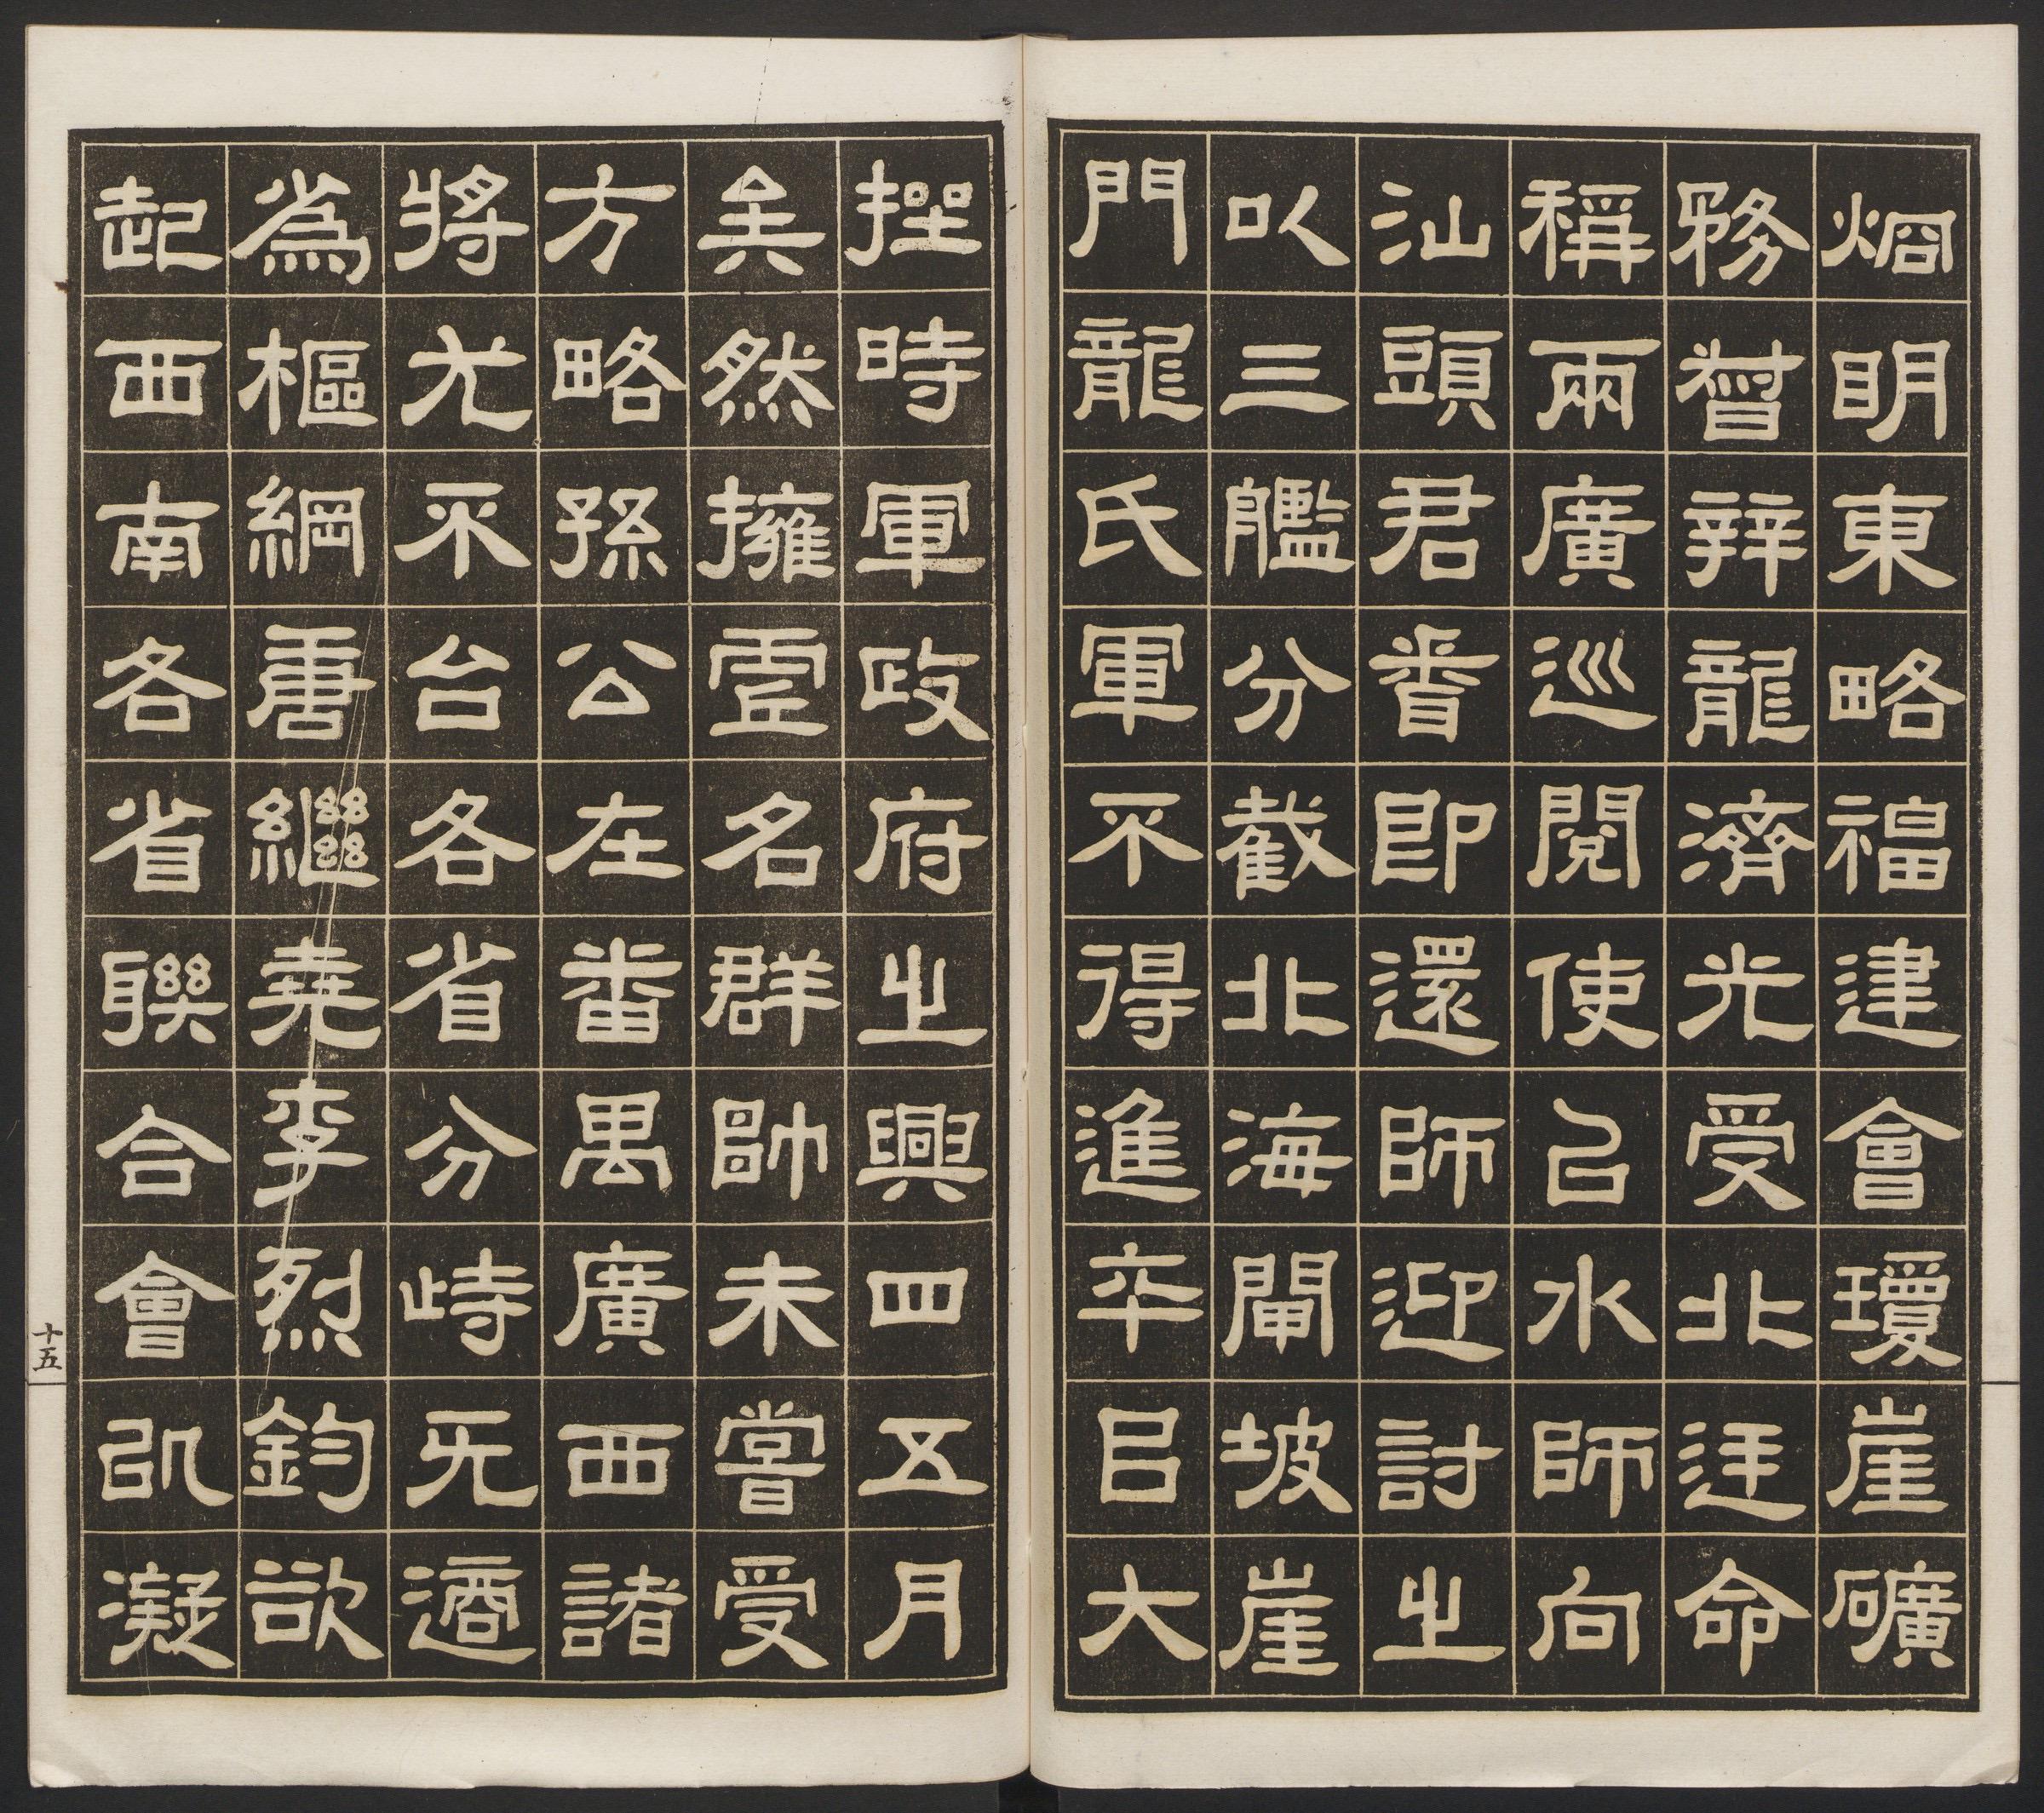 烱明東略福建會瓊崖礦
務督辦龍濟光受北廷命
稱兩廣巡閱使㠯水師向
汕頭君䎽即還師迎討之
以三艦分截北海閘坡崖
門龍氏軍不得進卒㠯大
挫時軍政府之興四五月
矣然擁虛名群帥未嘗受
方略孫公在番禺廣西諸
將尤不台各省分峙无適
為樞綱唐繼堯李烈鈞欲
起西南各省聯合會以凝
十五